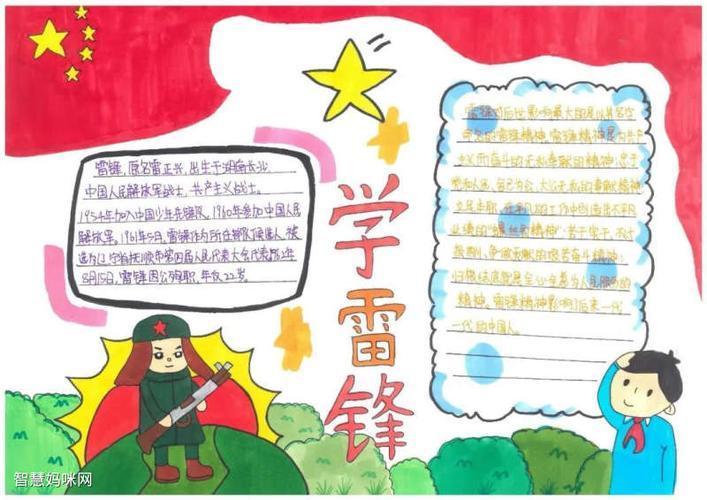 雷锋,原名雷正兴,出生于湖南长沙,
中国人民解放军战士,共产主义战士。
1954年加入中国少年先锋队,1960年参加中国人民
解放军,1961年5月,雷锋作为所在部队候选人,被
选为辽宁省抚顺市第四届人民代表大会代表,1962年
8月15日,雷锋因公殉职,年仅22岁。
学雷锋
雷锋对后世影响最大的是以其名字
命名的雷锋精神,雷锋精神是为共产
主义而奋斗的无私奉献的精神;忠于
党和人民、舍己为公、大公无私的奉献精神
立足本职、在平凡的工作中创造出不平凡
业绩的"螺丝钉精神";苦干实干、不计
报酬、争做贡献的艰苦奋斗精神;
归根结底就是全心全意为人民服务的
精神,雷锋精神影响了后来一代
一代的中国人。
智慧妈咪网